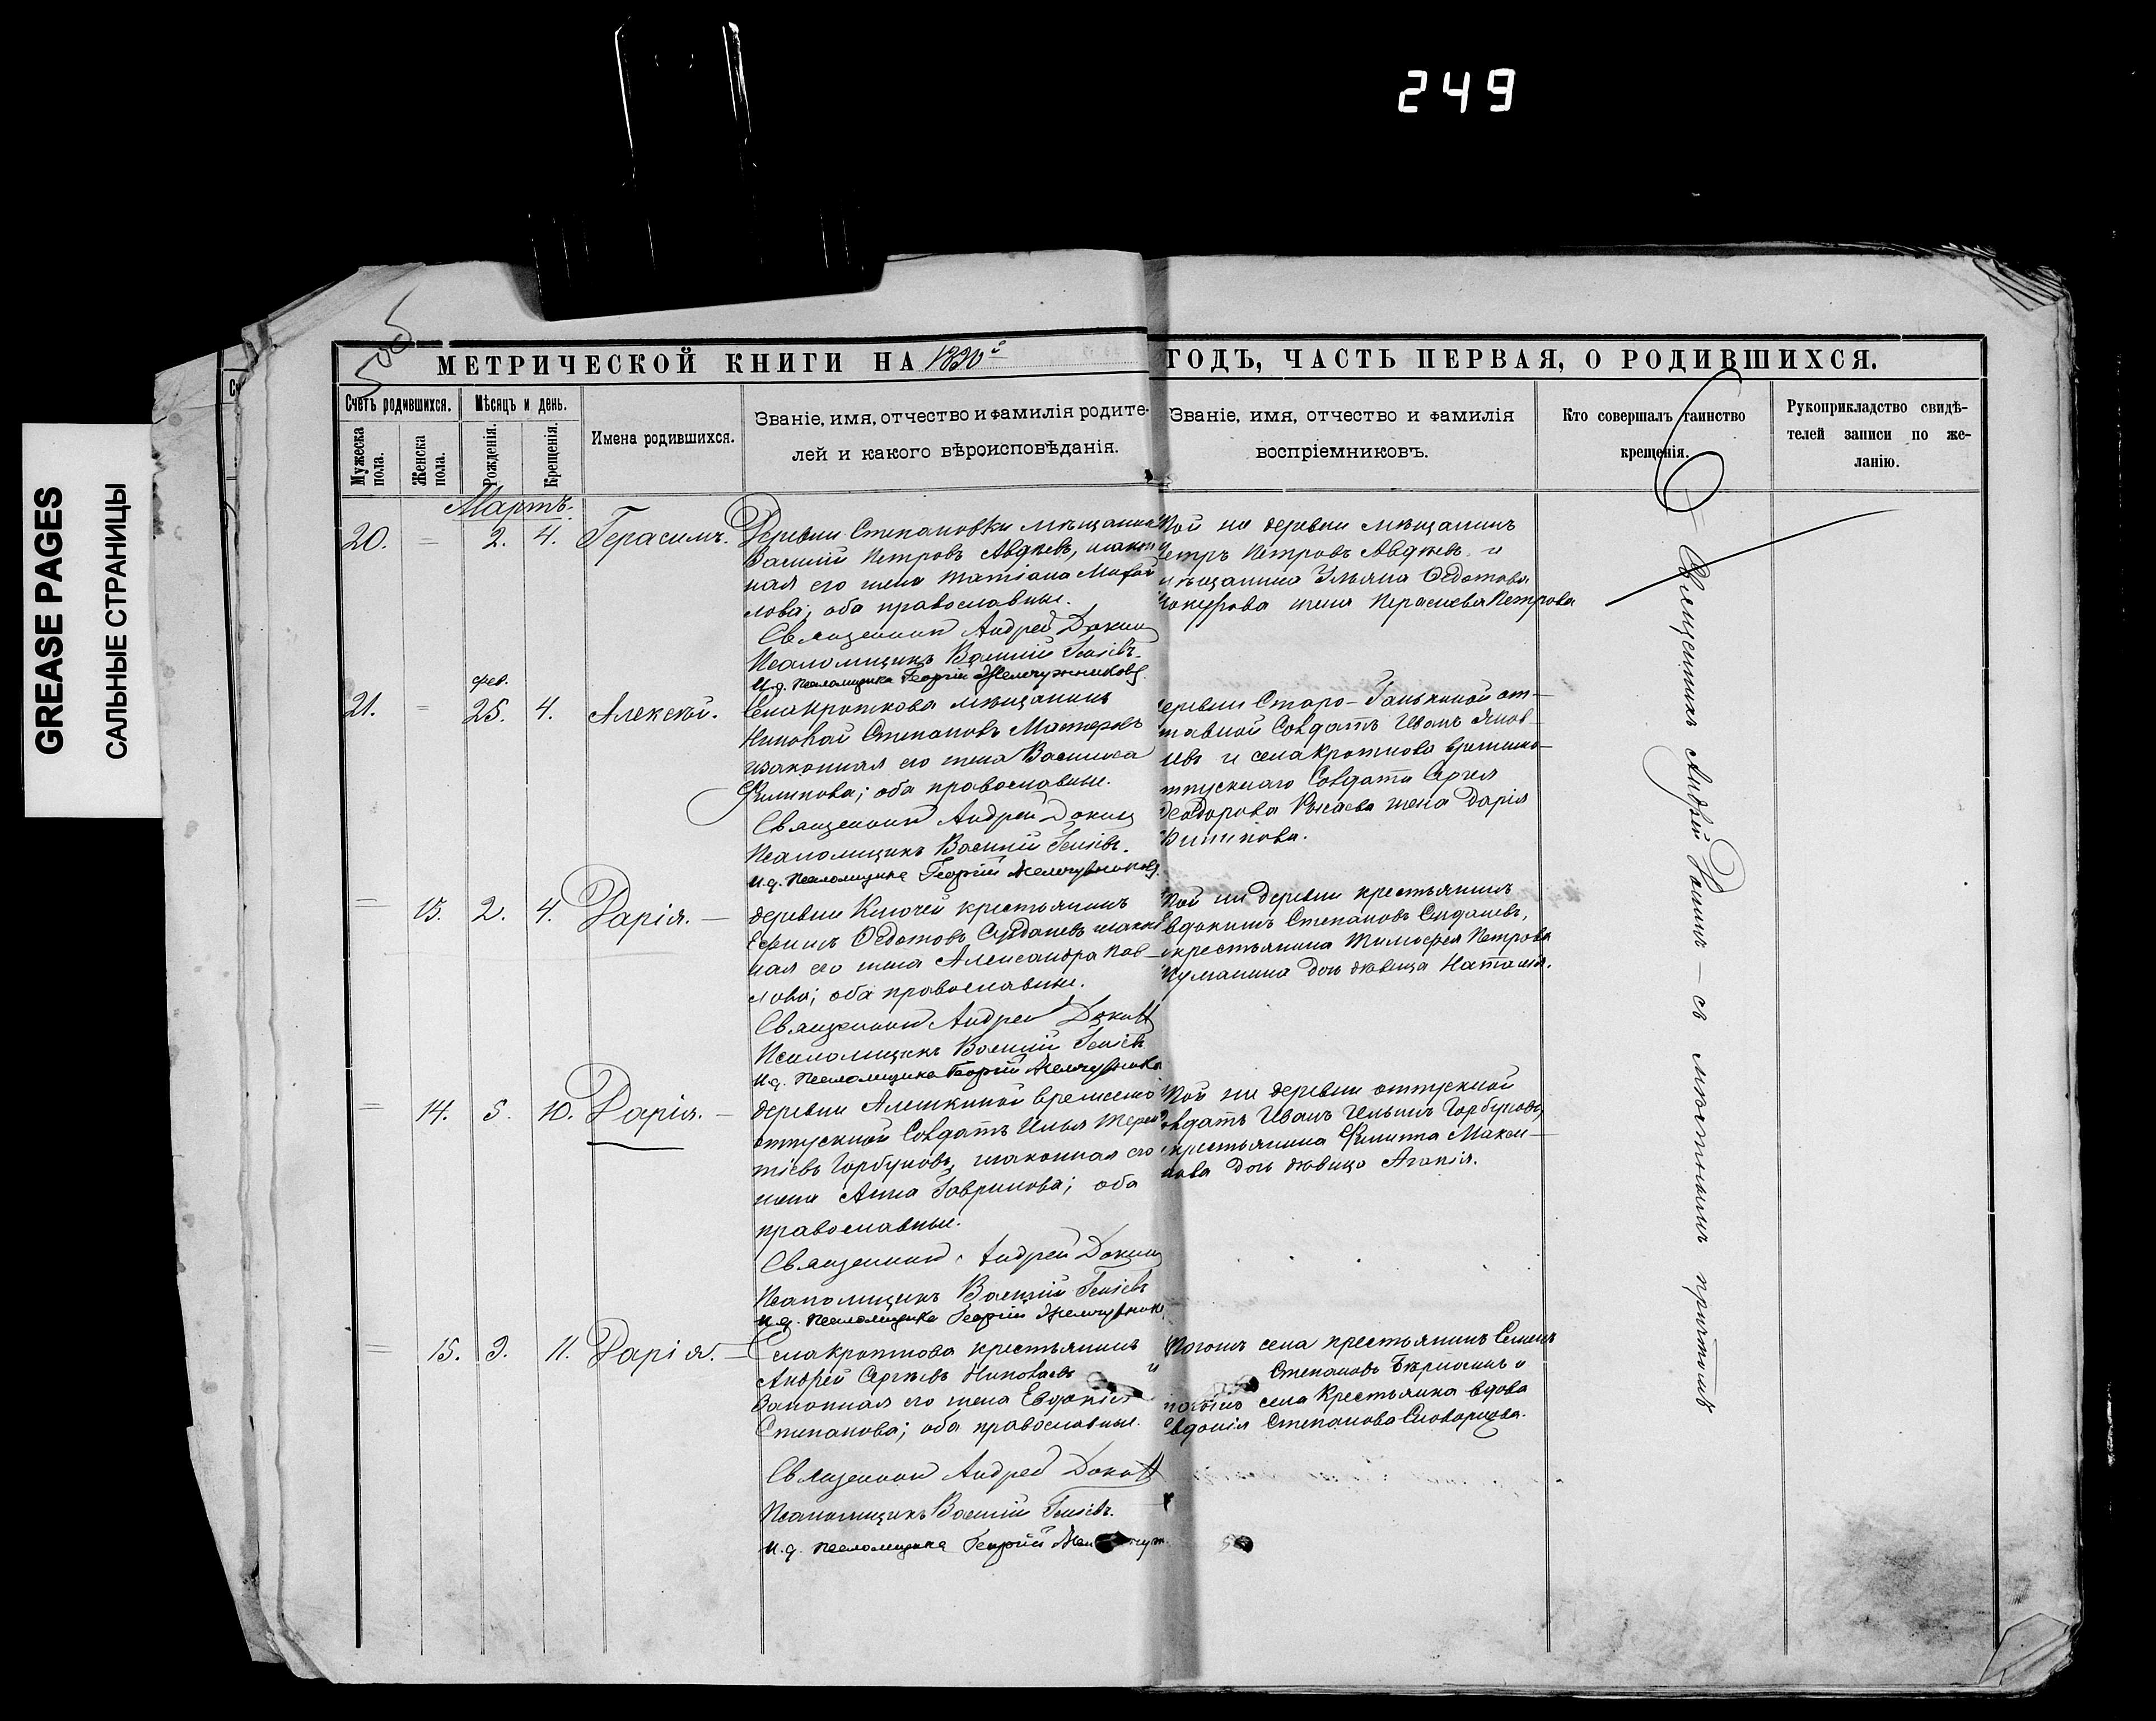 249
GREASE PAGES
САЛЬНЫЕ СТРАНИЦЫ
МЕТРИЧЕСКОЙ КНИГИ НА 1890й
ГОДЪ, ЧАСТЬ ПЕРВАЯ, О РОДИВШИХСЯ.
Счетъ родившихся.
Мужеска пола.
Женска пола.
Мѣсяцъ и день.
Рожденія.
Крещенія.
Имена родившихся.
Званіе, имя, отчество и фамилія родите-
лей и какого вѣроисповѣданія.
Званіе, имя, отчество и фамилія
воспріемниковъ.
Кто совершалъ таинство
крещенія.
Рукоприкладство свидѣ-
телей записи по же-
ланію.
Мартъ.
20. = 2. 4. Герасимъ.
Деревни Степановки мѣщанинъ
Василій Петровъ Авдѣевъ, закон
ная его жена Татіана Михай
лова; оба православные.
Священникъ Андрей
Псаломщикъ Василій
И.д. Псаломщика Георгій Жемчужниковъ
Той же деревни мѣщанинъ
Петръ Петровъ Авдѣевъ и
мѣщанина Ульяна Ѳедотова
жена Петрова
фев.
21. = 25. 4. Алексѣй.
Села Кроткова мѣщанинъ
Николай Степановъ Мастеровъ
и законная его жена Василиса
Филипова; оба православные.
Священникъ Андрей
Псаломщикъ Василій
И.д. Псаломщика Георгій Жемчужниковъ
деревни Старо- от-
ставной Солдатъ Иванъ
и села Кроткова временно-
отпускнаго Солдата Сергѣя
Ѳеодорова жена Дарія
Филипова.
= 13. 2. 4. Дарія. —
деревни Ключей крестьянинъ
Ефимъ Ѳедотовъ закон
ная его жена Александра Пав-
лова; оба православные.
Священникъ Андрей
Псаломщикъ Василій
И.д. Псаломщика Георгій
Той же деревни крестьянинъ
Евдокимъ Степановъ
крестьянина Тимофея Петрова
дочь дѣвица Наталія.
= 14. 5. 10. Дарія. —
деревни Алешкиной временно
отпускной Солдатъ Илья Терен
тіевъ Горбуновъ, законная его
жена Анна Гаврилова; оба
православные.
Священникъ Андрей
Псаломщикъ Василій
И.д. Псаломщика Георгій
Той же деревни отпускной
Солдатъ Иванъ Ильинъ Горбуновъ,
крестьянина Филиппа Макси-
мова дочь дѣвица Агапія.
= 15. 9. 11. Дарія. —
Села Кроткова крестьянинъ
Андрей Сергѣевъ Николаевъ и
Законная его жена Евдокія
Степанова; оба православные.
Священникъ Андрей
Псаломщикъ Василій
И.д. Псаломщика Георгій
Тогожъ села крестьянинъ Семенъ
Степановъ и
тогожъ села Крестьянка вдова
Евдокія Степанова
Священникъ Андрей — съ мѣстнымъ причтомъ